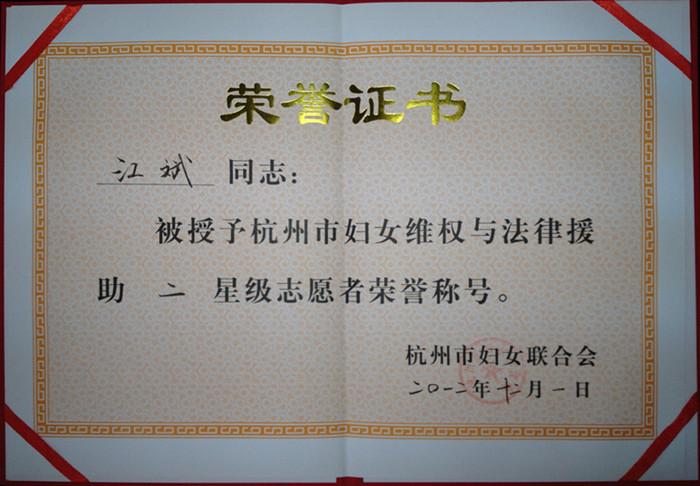 荣誉证书
江斌 同志：
被授予杭州市妇女维权与法律援
助 二 星级志愿者荣誉称号。
杭州市妇女联合会
二〇一二年十二月一日